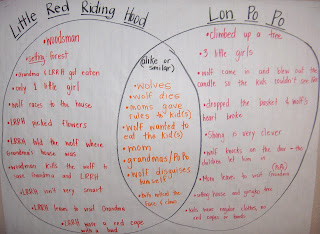 Little Red Riding Hood
• woodsman
• setting: forest
• Grandma & LRRH got eaten
• only 1 little girl
• wolf races to the house
• LRRH picked flowers
• LRRH told the wolf where
Grandma's house was
• woodsman kills the wolf to
save Grandma and LRRH
• LRRH isn't very smart
• LRRH leaves to visit Grandma
• LRRH wore a red cape
with a hood
(alike or
similar)
• wolves
• wolf dies
• moms gave
rules to kid(s)
• wolf wanted to
eat the kid(s)
• mom
• grandmas/PoPo
• wolf disguises
himself
Lon Po Po
• climbed up a tree
• 3 little girls
• wolf came in and blew out the
candle so the kids couldn't see him
• dropped the basket & wolf's
heart broke
• Shang is very clever
• wolf knocks on the door - the
children let him in
• Mom leaves to visit Grandma
• setting: house and gingko tree
• kids wear regular clothes, no
red capes or hoods